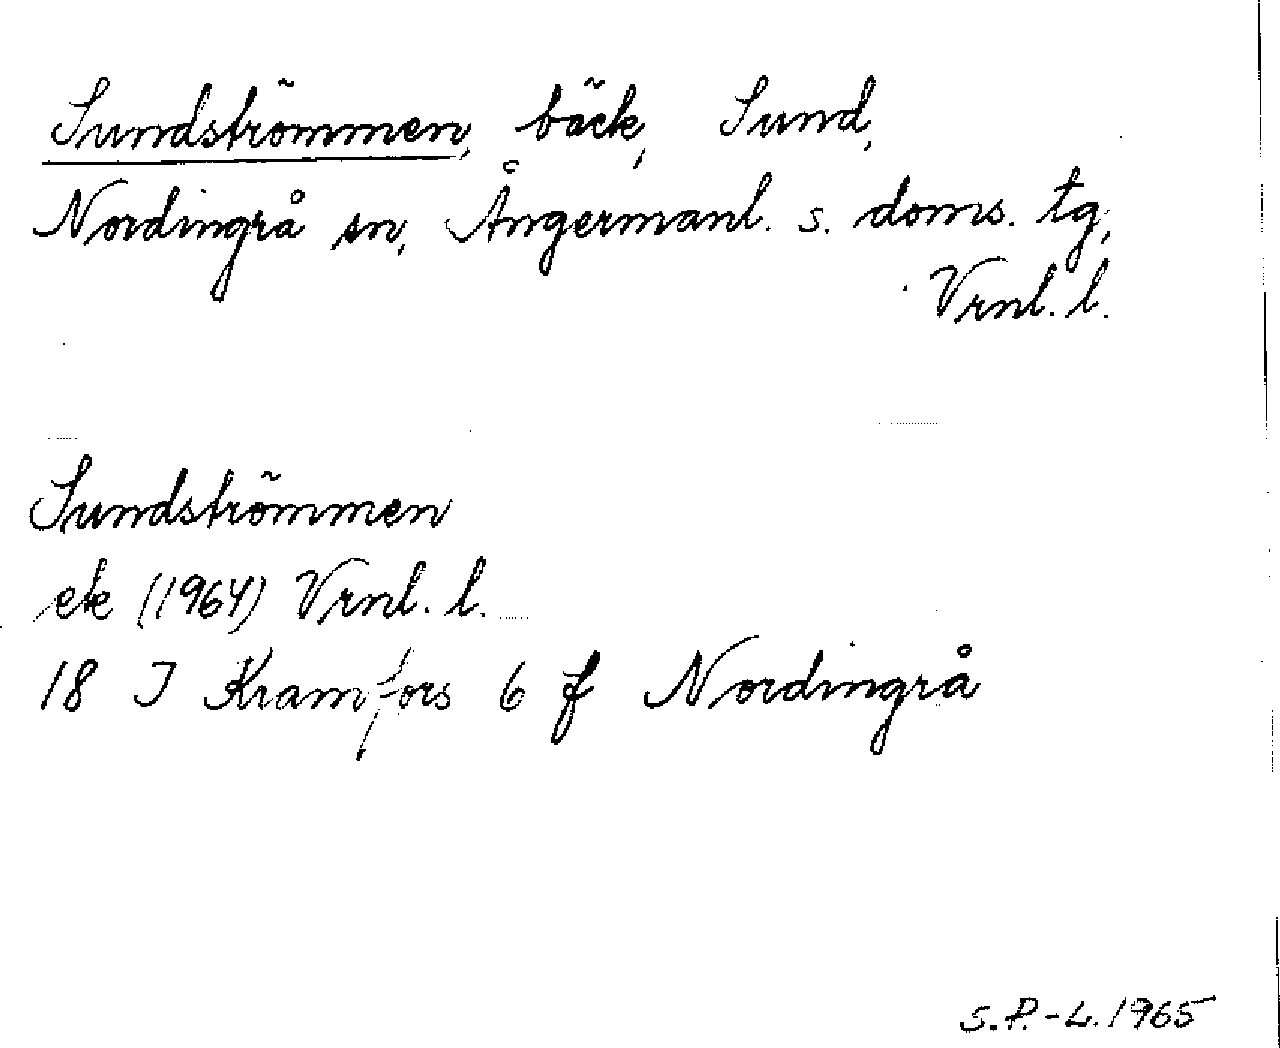 Sundströmmen, bäck, Sund,
Nordingrå sn, Ångermanl. s. doms. tg,
Vrnl. l.
Sundströmmen
ek (1964) Vrnl. l.
18 J Kramfors 6 f Nordingrå
S.P.-L. 1965